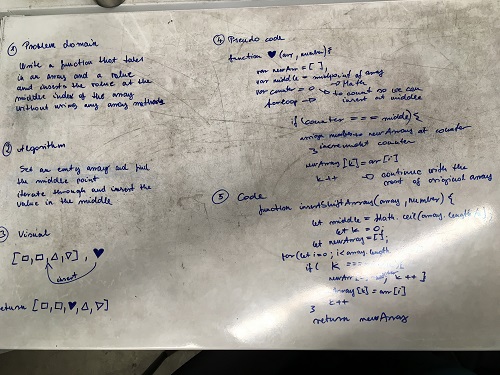 ① Problem domain
Write a function that takes
in an array and a value
and inserts the value at the
middle index of the array
without using any array methods
② Algorithm
Set an empty array and find
the middle point
iterate through and insert the
value in the middle
3 Visual
[□,□,△,▽] , ♥
insert
return [□,□,♥,△,▽]
④ Pseudo code
function ♥ (arr, number){
var newArr = [ ],
var middle = midpoint of array
var counter = 0 → Math
forloop → to count so we can
insert at middle
if (counter === middle) {
newArray at counter
} increment counter
newArray [k] = arr [i]
k++ → continue with the
rest of original array
⑤ Code
function insertShiftArray (array, number) {
let middle = Math. ceil (array. length /
let k = 0;
let newArray = [];
for (let i=0; i< array. length
if ( k ===
k++ }
[k] = arr [i]
k++
}
return newArray